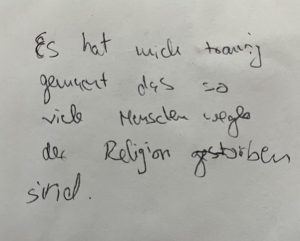 Es hat mich traurig
gemacht das so
viele Menschen wegen
der Religion gestorben
sind.